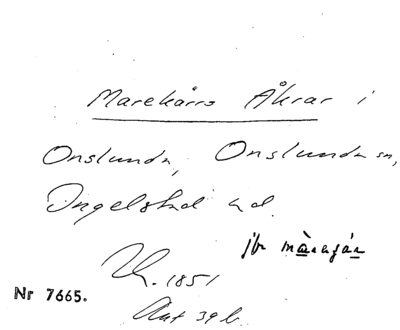 Marekärrs Åkrar i
Onslunda, Onslunda sn,
Ingelstad hd.
jfr märagår
Lk. 1851
Nr 7665.
Akt 39 b